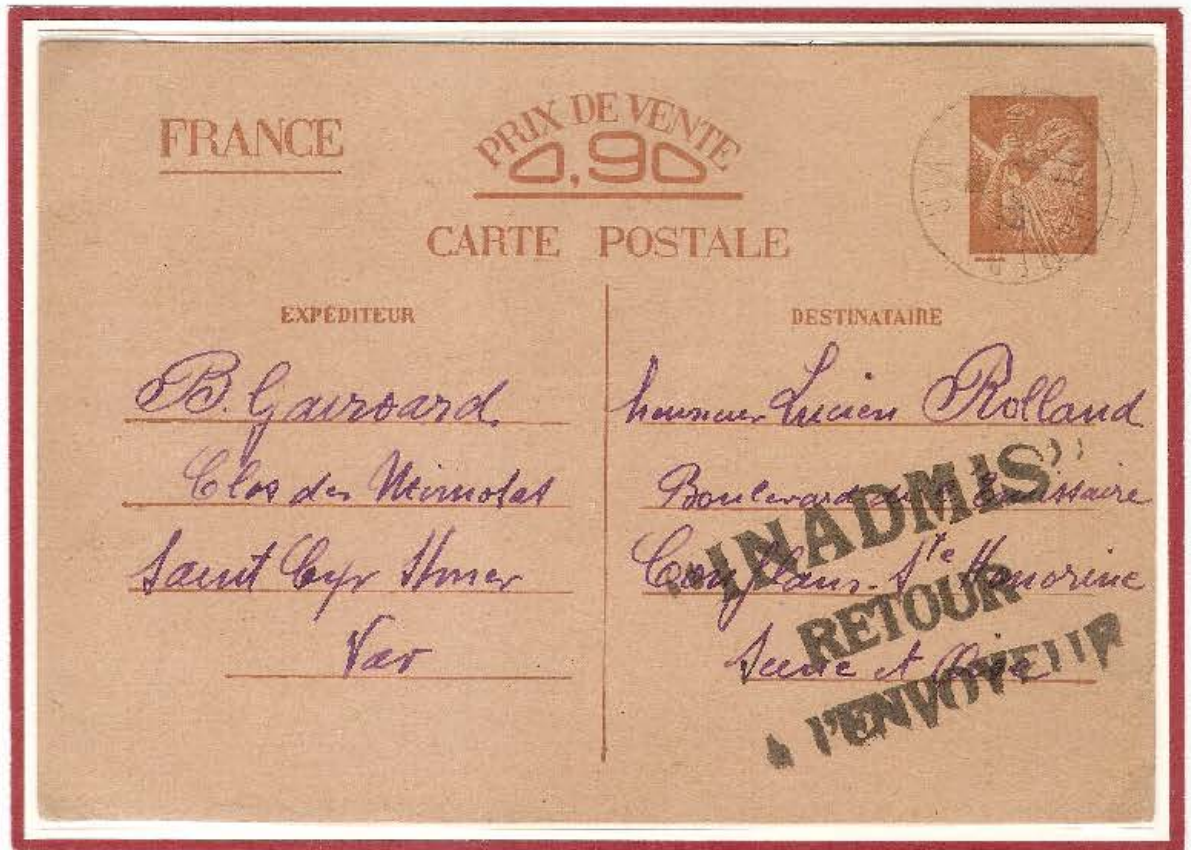 FRANCE
PRIX DE VENTE
0,90
CARTE POSTALE
EXPÉDITEUR
B. Gairoard
Clos des
Saint Cyr S/mer
Var
DESTINATAIRE
Monsieur Lucien Rolland
Boulevard
Conflans-Ste Honorine
Seine et Oise
"INADMIS"
RETOUR
à l'ENVOYEUR